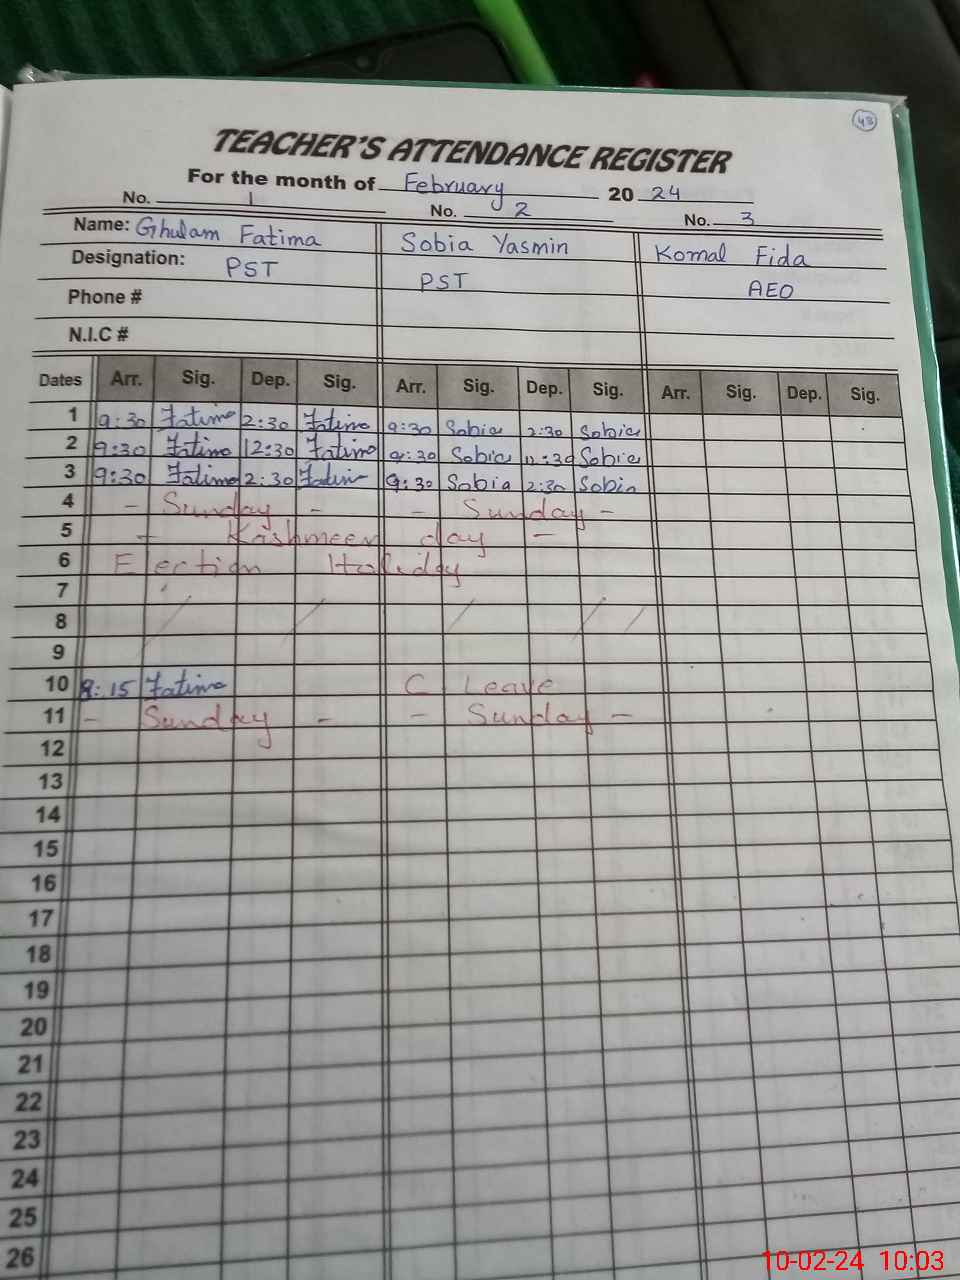 43
TEACHER'S ATTENDANCE REGISTER
For the month of February 2024
No. 1 No. 2 No. 3
Name: Ghulam Fatima Sobia Yasmin Komal Fida
Designation: PST PST AEO
Phone #
N.I.C #
Dates Arr. Sig. Dep. Sig. Arr. Sig. Dep. Sig. Arr. Sig. Dep. Sig.
1 9:30 Fatima 2:30 Fatima 9:30 Sobia 2:30 Sobia
2 9:30 Fatima 12:30 Fatima 9:30 Sobia 12:30 Sobia
3 9:30 Fatima 2:30 Fatima 9:30 Sobia 2:30 Sobia
4 - Sunday - - Sunday -
5 - Kashmeer day -
6 Election Holiday
7
8
9
10 8:15 Fatima C Leave
11 - Sunday - - Sunday -
12
13
14
15
16
17
18
19
20
21
22
23
24
25
26
10-02-24 10:03